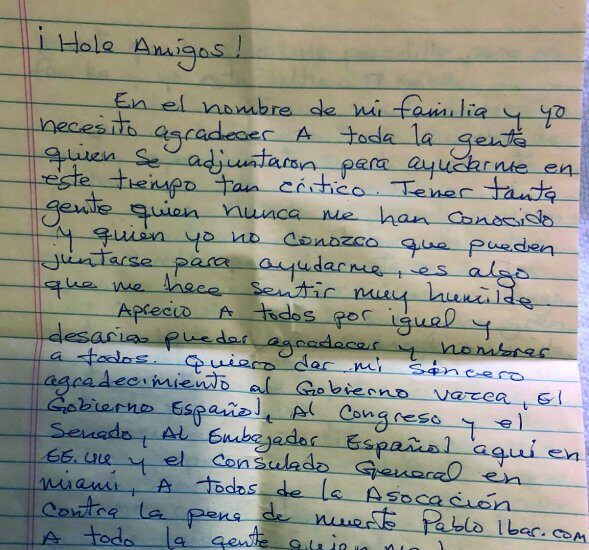 ¡Hola Amigos!
En el nombre de mi familia y yo
necesito agradecer A toda la gente
quien se adjuntaron para ayudarme en
este tiempo tan critico. Tener tanta
gente quien nunca me han conocido
y quien yo no conozco que pueden
juntarse para ayudarme, es algo
que me hace sentir muy humilde.
Aprecio A todos por igual y
desaria pueder agradecer y nombrar
a todos. Quiero dar mi sincero
agradecimiento al Gobierno vazca, El
Gobierno Español, Al Congreso y el
Senado, Al Embajador Español aqui en
EE.UU y el Consulado General en
Miami, A todos de la Asocación
Contra la pena de muerte Pablo Ibar.com
A todo la gente quien